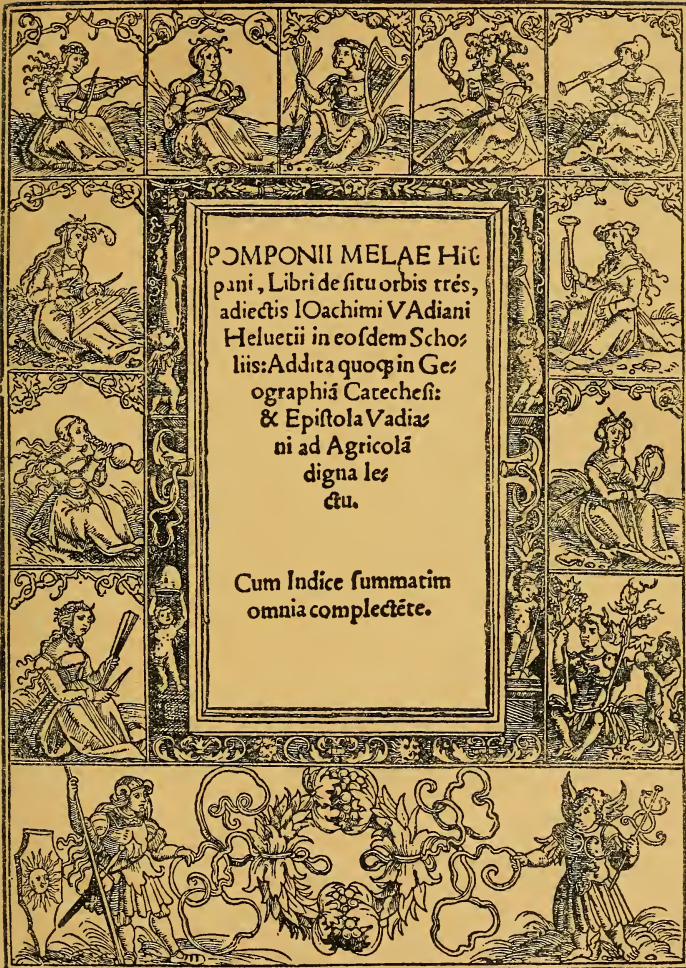 POMPONII MELAE Hiſ⸗
pani, Libri de ſitu orbis trés,
adiectis IOachimi VAdiani
Heluetii in eoſdem Scho⸗
liis: Addita quoqꝫ in Ge⸗
ographiā Catecheſi:
& Epiſtola Vadia⸗
ni ad Agricolā
digna le⸗
ctu.
Cum Indice ſummatim
omnia complectēte.